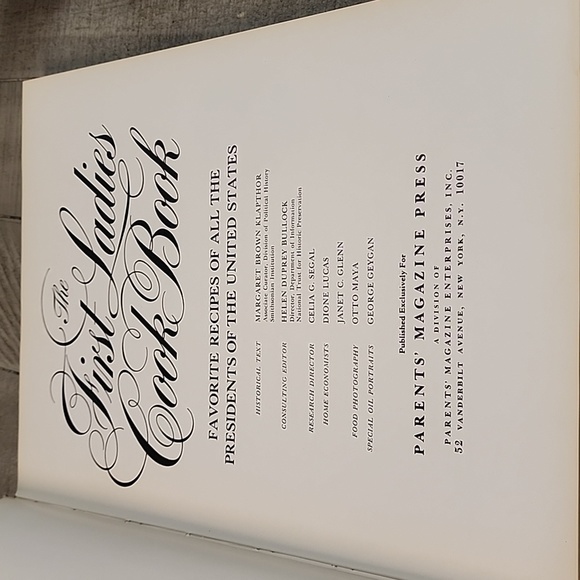 The
First Ladies
Cook Book
FAVORITE RECIPES OF ALL THE
PRESIDENTS OF THE UNITED STATES
HISTORICAL TEXT MARGARET BROWN KLAPTHOR
Associate Curator, Division of Political History
Smithsonian Institution
CONSULTING EDITOR HELEN DUPREY BULLOCK
Director, Department of Information
National Trust for Historic Preservation
RESEARCH DIRECTOR CELIA G. SEGAL
HOME ECONOMISTS DIONE LUCAS
JANET C. GLENN
FOOD PHOTOGRAPHY OTTO MAYA
SPECIAL OIL PORTRAITS GEORGE GEYGAN
Published Exclusively For
PARENTS' MAGAZINE PRESS
A DIVISION OF
PARENTS' MAGAZINE ENTERPRISES, INC.
52 VANDERBILT AVENUE, NEW YORK, N.Y. 10017